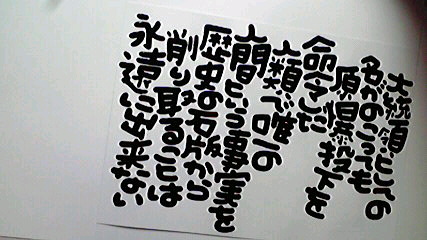 大統領としての
名がのこっても
原爆投下を
命令した
人類で唯一の
人間という事実を
歴史の石版から
削り取ることは
永遠に出来ない